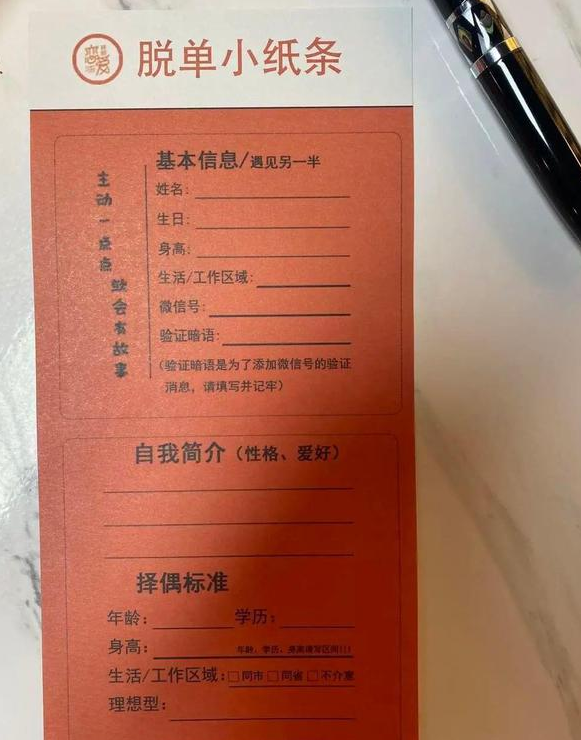 恋爱
脱单小纸条
基本信息/遇见另一半
主动一点点
就会有故事
姓名:
生日:
身高:
生活/工作区域:
微信号:
验证暗语:
(验证暗语是为了添加微信号的验证
消息，请填写并记牢)
自我简介(性格、爱好)
择偶标准
年龄: 学历:
身高: 年龄、学历、身高请写区间!!!
生活/工作区域:□同市□同省□不介意
理想型: